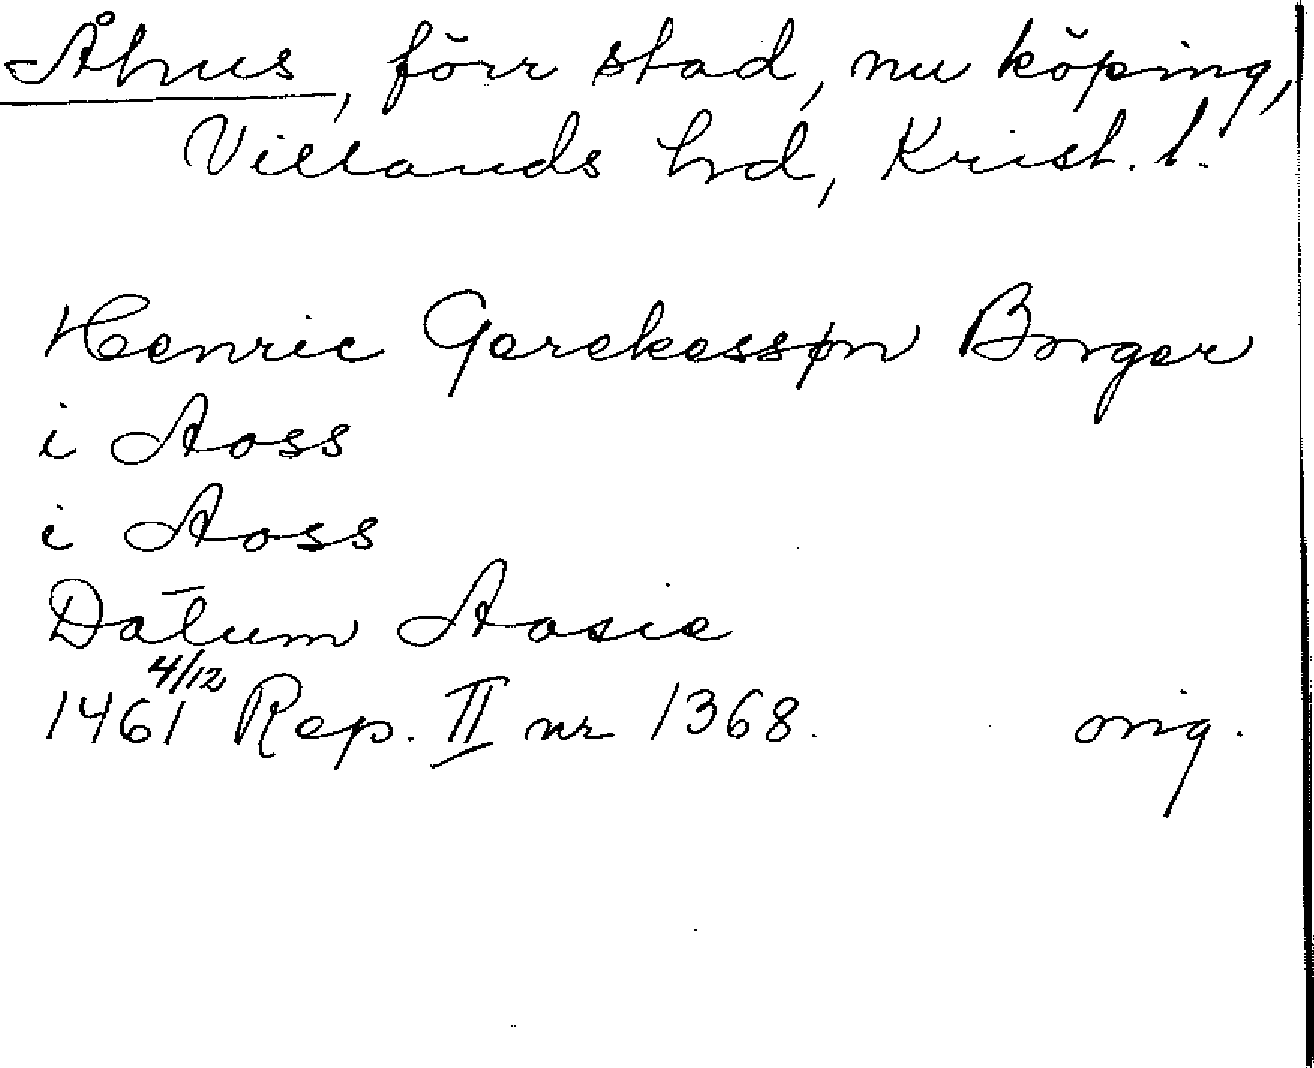 Åhus, förr stad, nu köping,
Villands hrd, Krist. l.
Henric Gerekessøn Borger
i Aoss
i Aoss
Datum Aosie
1461 4/12 Rep. II nr 1368. orig.